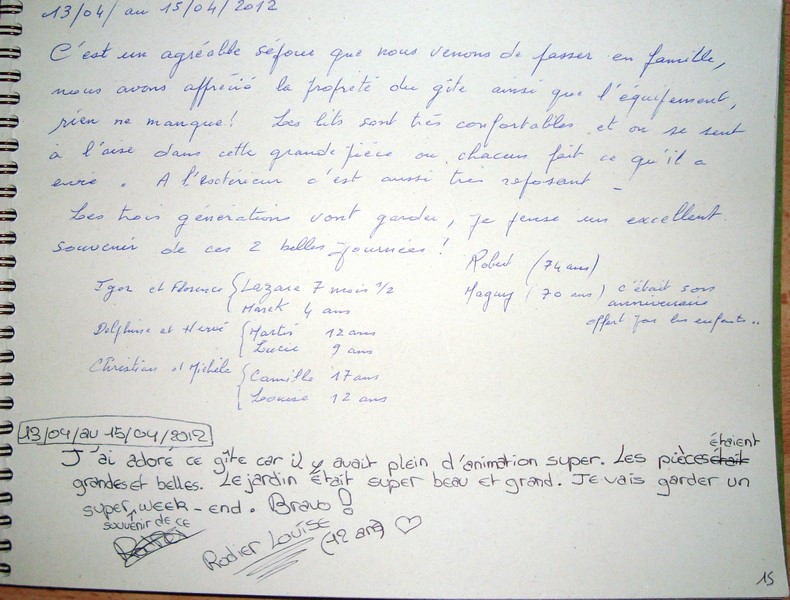 13/04/ au 15/04/2012
C'est un agréable séjour que nous venons de passer en famille,
nous avons apprécié la propreté du gîte ainsi que l'équipement,
rien ne manque! Les lits sont très confortables et on se sent
à l'aise dans cette grande pièce ou chacun fait ce qu'il a
envie. A l'extérieur c'est aussi très reposant -
Les trois générations vont garder, je pense un excellent
souvenir de ces 2 belles journées!
Robert (74 ans)
Maguy (70 ans) c'était son
anniversaire
offert par les enfants..
Igor et Florence { Lazare 7 mois 1/2
Marek 4 ans
Delphine et Hervé { Martin 12 ans
Lucie 9 ans
Christian et Michèle { Camille 17 ans
Louise 12 ans
13/04/au 15/04/2012
J'ai adoré ce gîte car il y avait plein d'animation super. Les pièces était étaient
grandes et belles. Le jardin était super beau et grand. Je vais garder un
super souvenir de ce week-end. Bravo!
Rodier Louise (12 ans) ♡
15